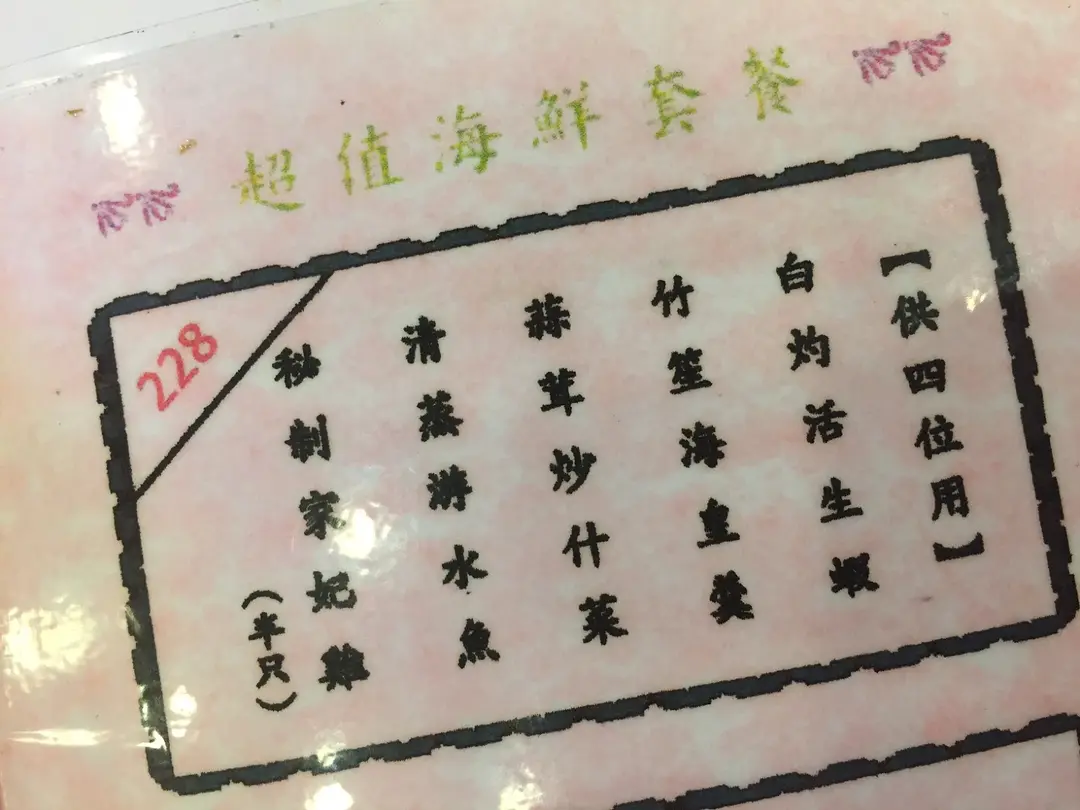 超值海鮮套餐
【供四位用】
白灼活生蝦
竹笙海皇羹
蒜茸炒什菜
清蒸游水魚
秘制家妃雞
(半只)
228